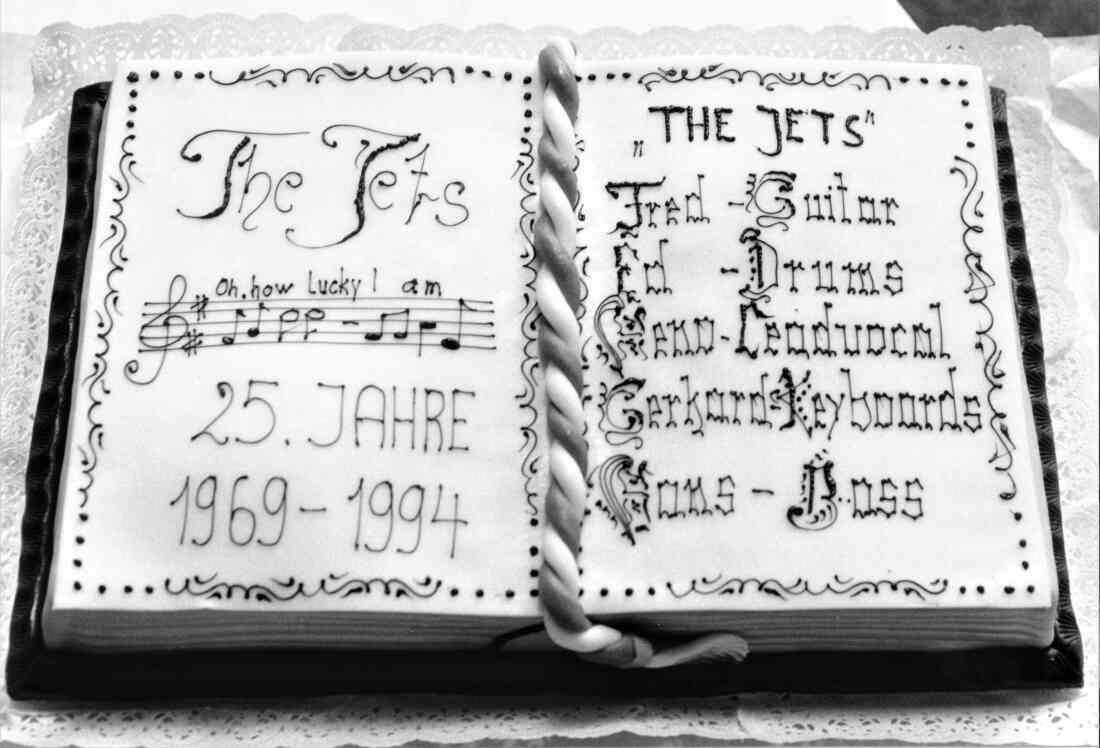 The Jets
Oh, how Lucky I am
25. JAHRE
1969 - 1994
„THE JETS"
Fred - Guitar
Ed - Drums
- Leadvocal
Gerhard-Keyboards
Hans - Bass